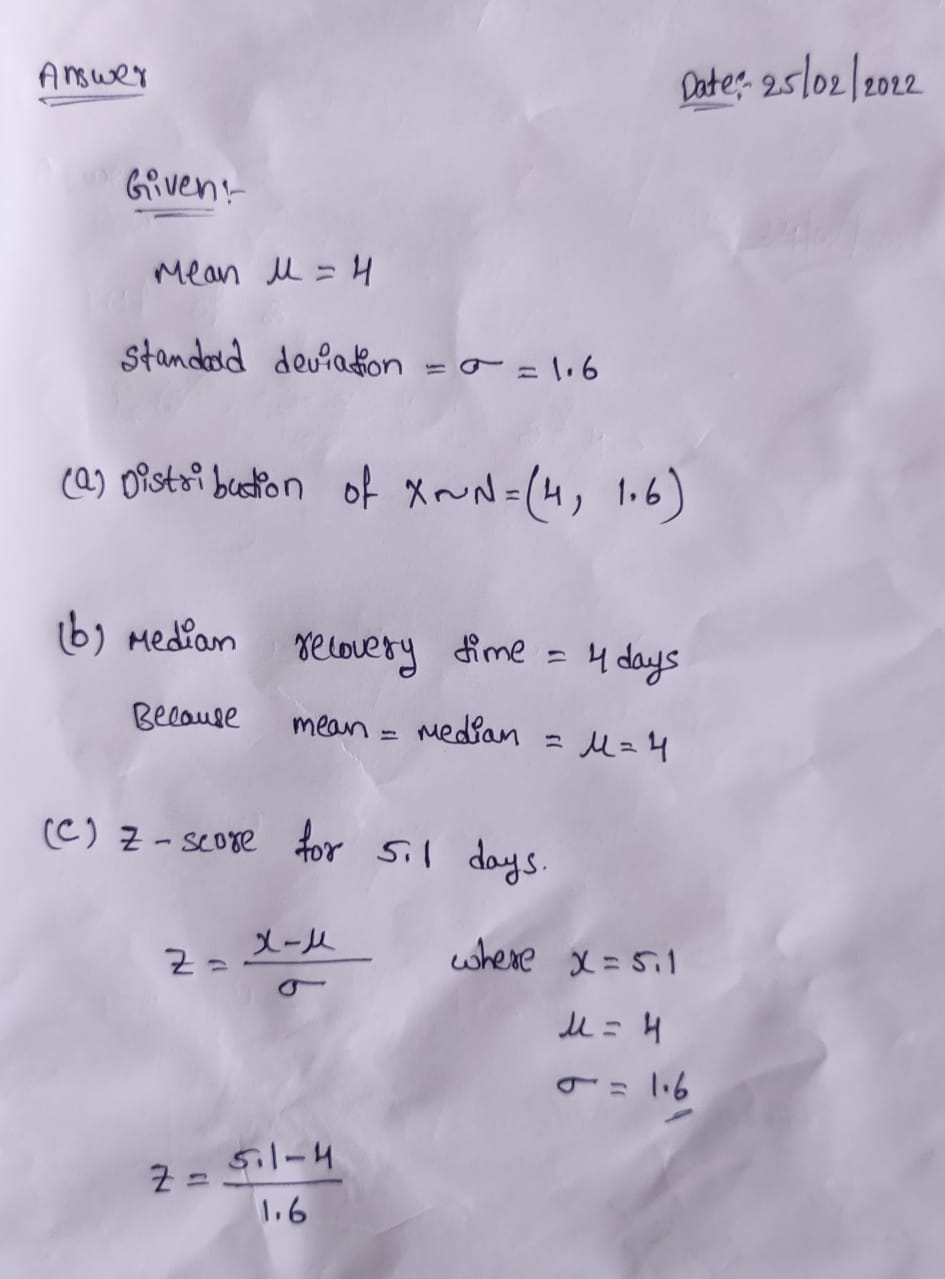 Answer Date:- 25/02/2022
Given:-
Mean μ = 4
Standard deviation = σ = 1.6
(a) Distribution of X~N=(4, 1.6)
(b) Median recovery time = 4 days
Because mean = Median = μ=4
(C) Z-score for 5.1 days.
Z = x-μ / σ where x = 5.1
μ = 4
σ = 1.6
Z = 5.1-4 / 1.6